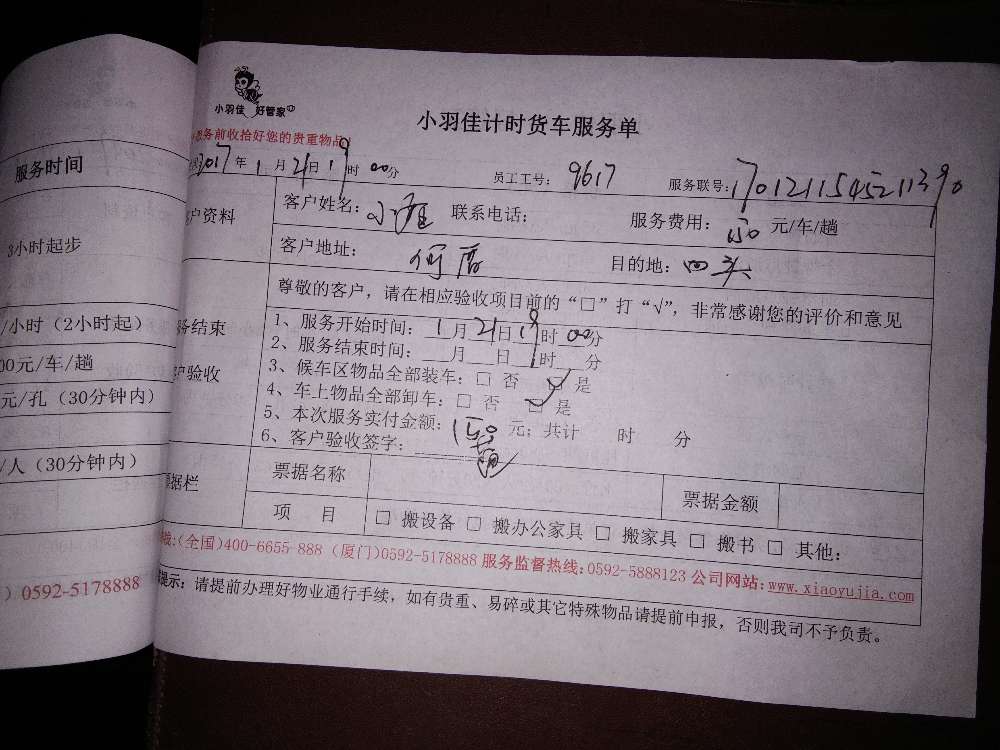 服务时间
3小时起步
/小时（2小时起）
00元/车/趟
元/孔（30分钟内）
/人（30分钟内）
）0592-5178888
小羽佳 好管家
小羽佳计时货车服务单
服务前收拾好您的贵重物品！
2017年1月21日19时00分 员工工号：9617 服务联号：
客户资料 客户姓名：小 联系电话： 服务费用：150元/车/趟
客户地址：何厝 目的地：四头
尊敬的客户，请在相应验收项目前的“□”打“√”，非常感谢您的评价和意见
服务结束
客户验收
1、服务开始时间：1月21日19时00分
2、服务结束时间： 月 日 时 分
3、候车区物品全部装车：□ 否 □ 是
4、车上物品全部卸车：□ 否 □ 是
5、本次服务实付金额：150元；共计 时 分
6、客户验收签字：
票据栏 票据名称 票据金额
项 目 □ 搬设备 □ 搬办公家具 □ 搬家具 □ 搬书 □ 其他：
线:(全国)400-6655 888 (厦门)0592-5178888 服务监督热线:0592-5888123 公司网站:www.xiaoyujia.com
提示：请提前办理好物业通行手续，如有贵重、易碎或其它特殊物品请提前申报，否则我司不予负责。